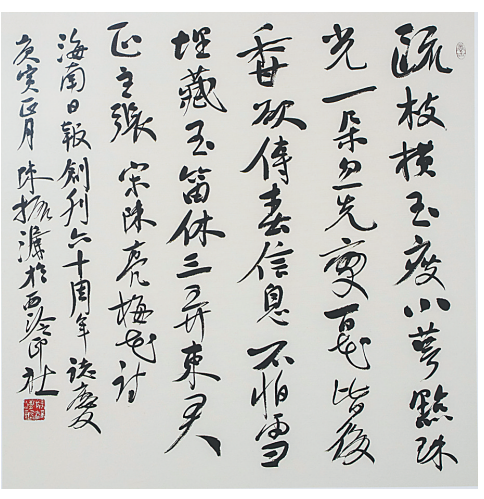 疏枝橫玉瘦小萼點珠
光一朵忽先變百花皆後
香欲傳春信息不怕雪
埋藏玉笛休三弄東君
正主張 宋陳亮梅花詩
海南日報創刊六十周年誌慶
庚寅正月陳振濂於西泠印社